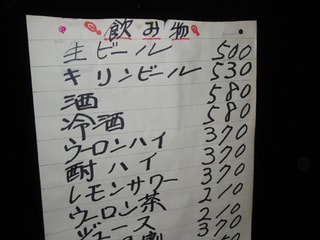 飲み物
生ビール 500
キリンビール 530
酒 580
冷酒 580
ウーロンハイ 370
酎ハイ 370
レモンサワー 370
ウーロン茶 210
ジュース 210
370